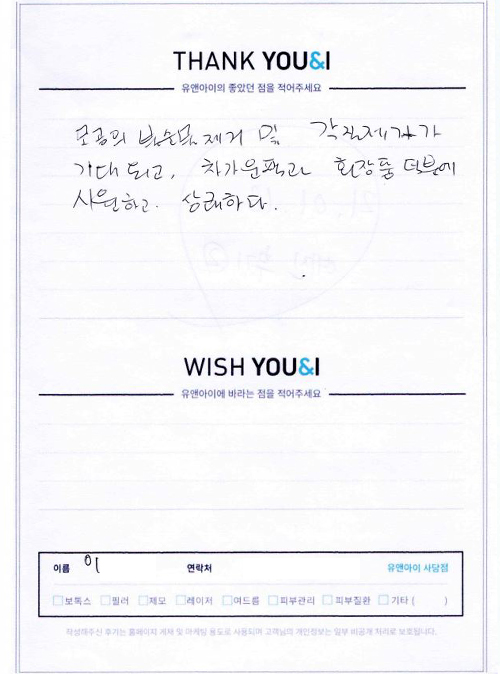 THANK YOU&I
유앤아이의 좋았던 점을 적어주세요
모공의 제거 및 각질제거가
기대되고, 차가운팩과 화장품 덕분에
시원하고. 상쾌하다.
WISH YOU&I
유앤아이에 바라는 점을 적어주세요
이름 이 연락처 유앤아이 사당점
보톡스 필러 제모 레이저 여드름 피부관리 피부질환 기타 ( )
작성해주신 후기는 홈페이지 게재 및 마케팅 용도로 사용되며 고객님의 개인정보는 일부 비공개 처리로 보호됩니다.